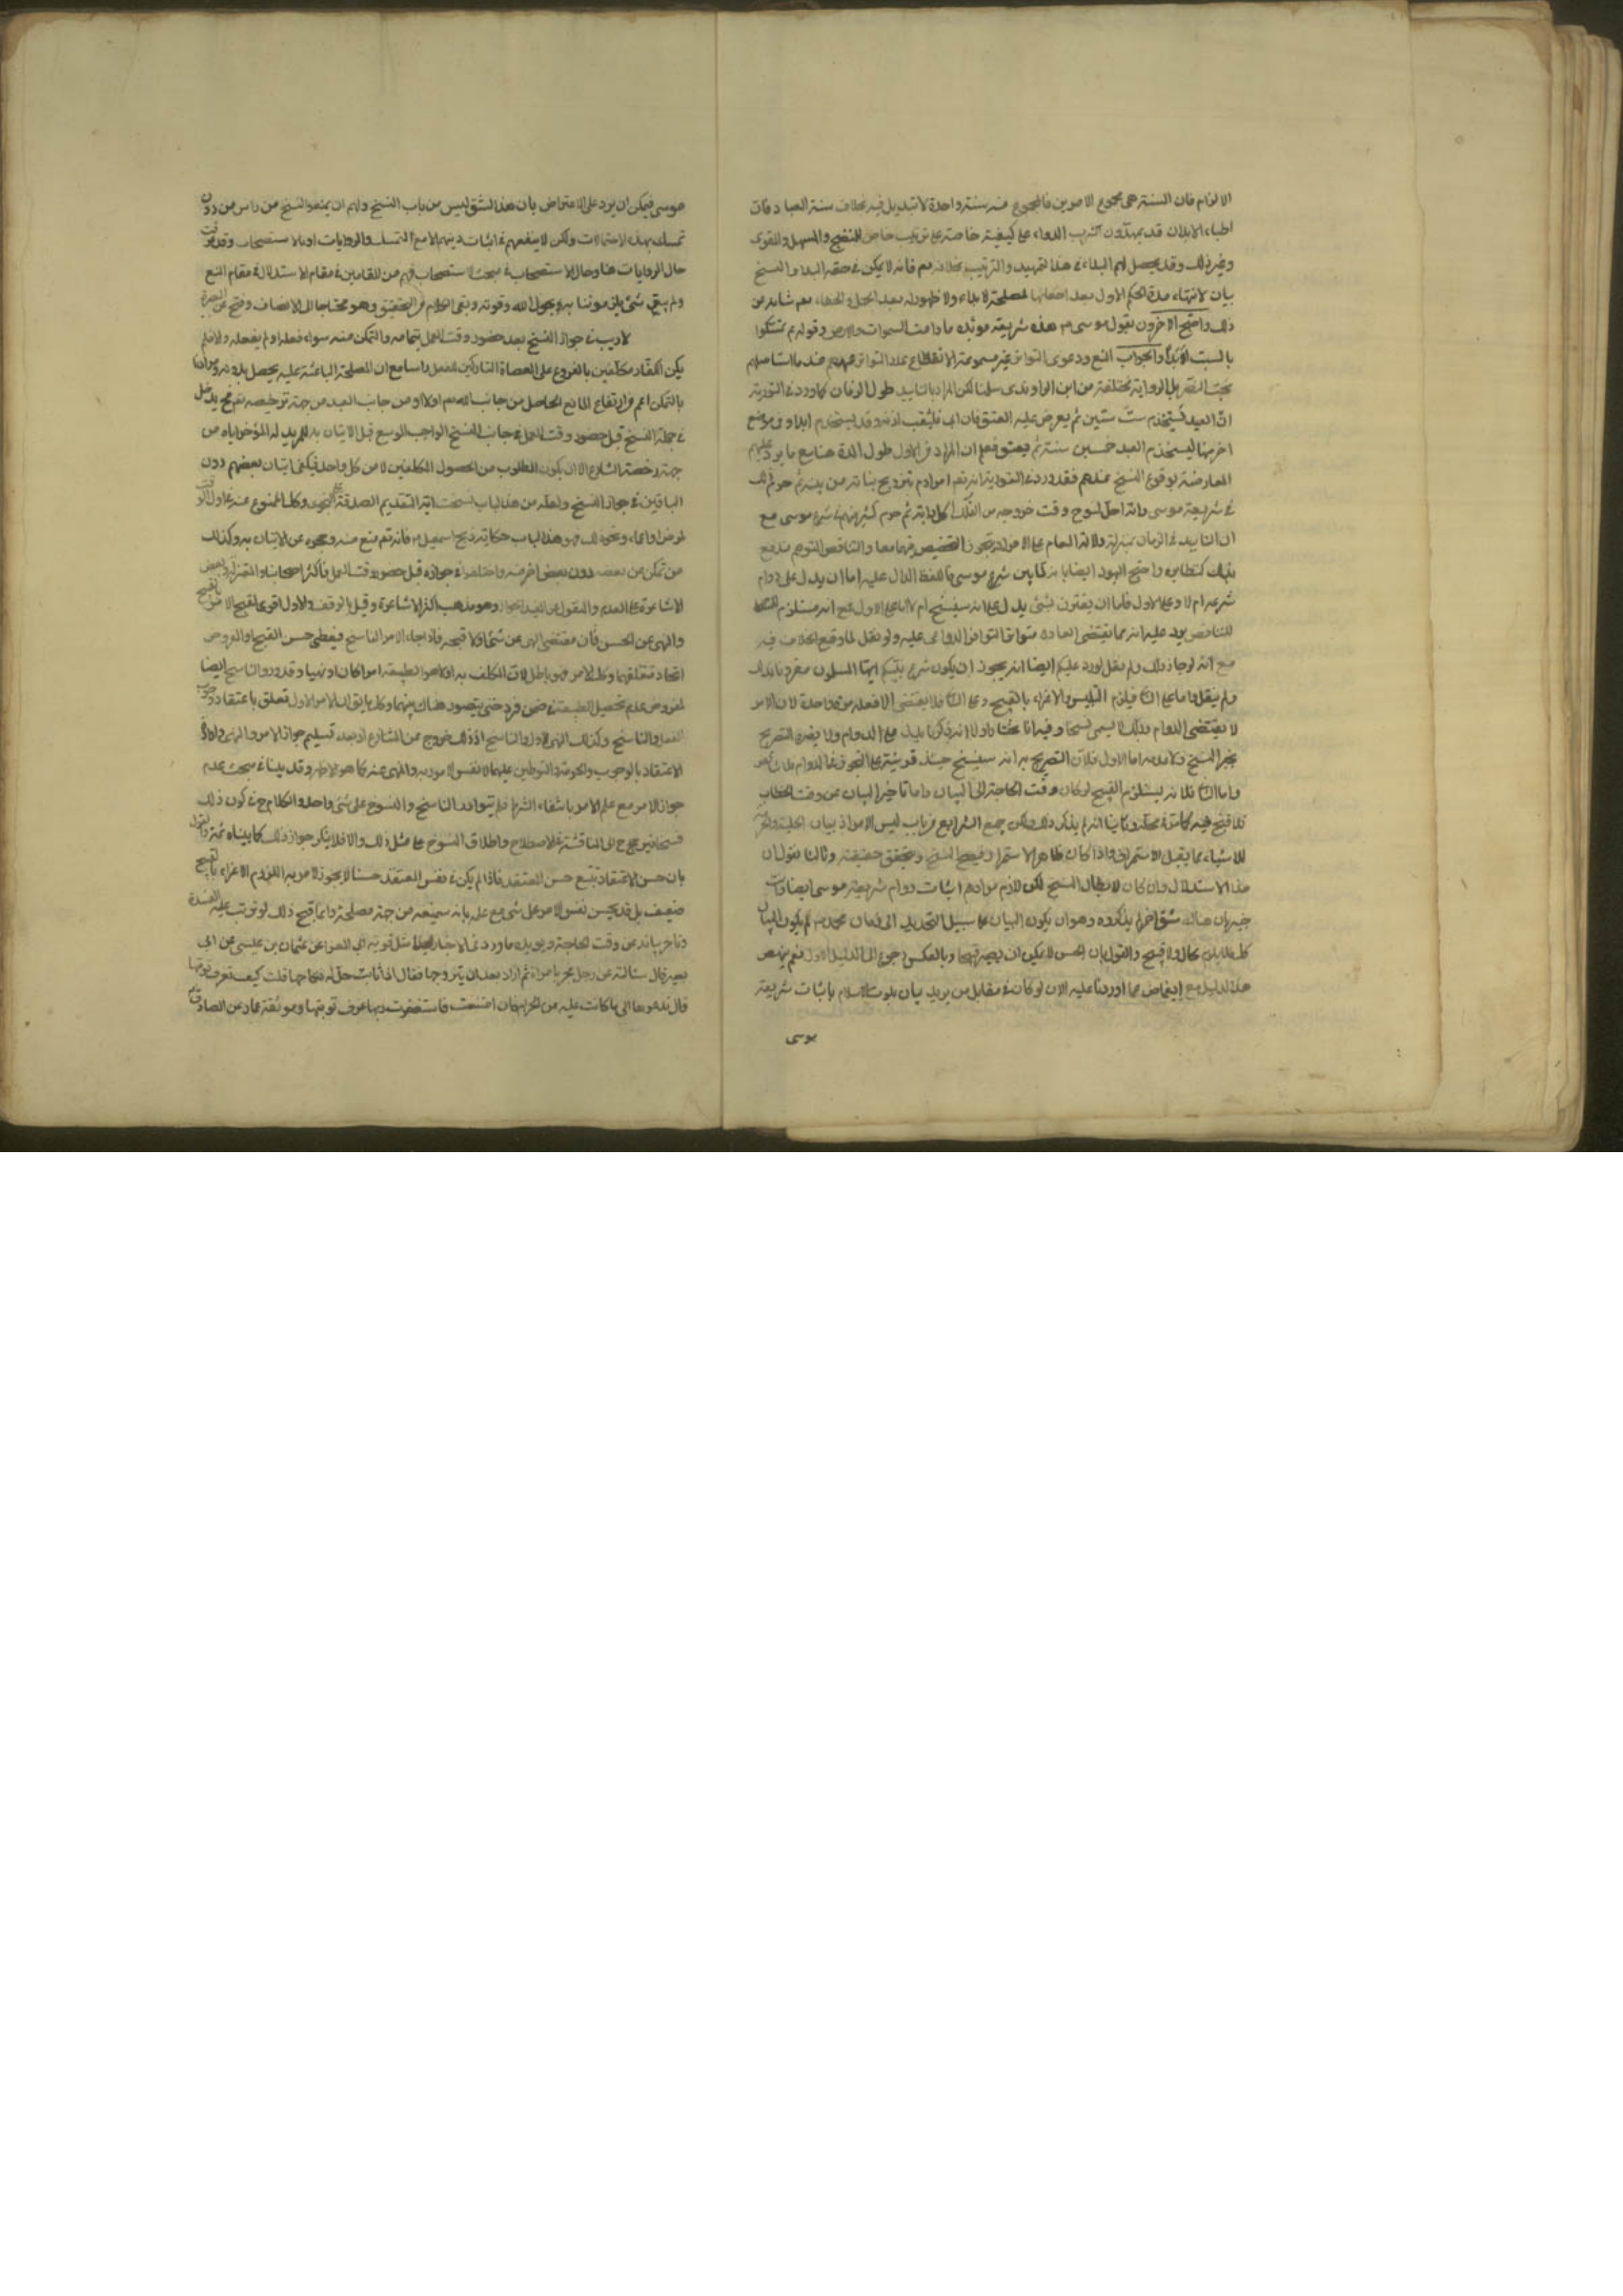 الالزام فان السنة هي مجموع الامرين فالمجموع منه سنة واحدة لا تبديل فيه بخلاف سنة العباد فان
اطباء الابدان قد يمهدون لشرب الدواء على كيفية خاصة على ترتيب خاص للنضج والمسهل والمقوى
وغير ذلك وقد يحصل لهم البداء في هذا التمهيد والترتيب بخلافه تعم فانه لا يمكن في حقه البداء والنسخ
بيان لانتهاء مدة الحكم الاول بعد اخفائها لمصلحة لا بداء ولا ظهور له بعد الجهل والخفاء تعم شانه عن
ذلك واحتج الاخرون بقول موسى هذه شريعة مؤبدة ما دامت السموات والارض وقوله تمسكوا
بالسبت ابدا والجواب المنع ودعوى التواتر غير مسموعة لانقطاع عدد التواتر عندما استاصلهم
بخت النصر بل الرواية مختلقة من ابن الراوندى سلمنا لكن المراد بالتابيد طول الزمان كما ورد في التورية
ان العبد يستخدم ست سنين ثم يعرض عليه العتق فان ابى فليثقب اذنه وقد يستخدم ابدا وفي موضع
اخر منها يستخدم العبد خمسين سنة ثم يعتق فعلم ان المراد في الاول طول المدة هنا مع ما يرد عليهم
المعارضة بوقوع النسخ عندهم فقد ورد في التورية انه تعم امر ادم بتزويج بناته من بنيه ثم حرم ذلك
في شريعة موسى وانه احل لنوح وقت خروجه من الفلك كل دابة ثم حرم كثير منها في شرع موسى مع
ان التابيد في الزمان بمنزلة دلالة العام على الافراد فيجوز التخصيص فيهما معا والتناقض المتوهم مندفع
هناك كخطاب واحتج اليهود ايضا بانه لما بين شرع موسى فاللفظ الدال عليه اما ان يدل على دوام
شرعه ام لا وعلى الاول فاما ان يقترن بشئ يدل على انه سينسخ ام لا اما على الاول فمع انه مستلزم
للتناقض يرد عليه انه مما تقتضى العادة متواترا لتوافر الدواعى عليه ولو نقل لما وقع الخلاف فيه
مع انه لو جاز ذلك ولم ينقل لورد عليكم ايضا انه يجوز ان يكون شرع نبيكم ايها المسلمون مقرونا بذلك
ولم ينقل واما على الثانى فيلزم التلبيس والاغراء بالقبيح وعلى الثالث فلا يقتضى الا فعله مرة واحدة لان الامر
لا يقتضى الدوام وذلك لا يسمى نسخا وفيه انا نختار اولا انه ذكر ما يدل على الدوام ولا يضره التصريح
بخبر النسخ ولا عدمه اما الاول فلان التصريح به انه سينسخ حينئذ قرينة على التجوز في الدوام فلا تناقض
واما الثانى فلانه يستلزم القبيح لو كان وقت الحاجة الى البيان واما تاخير البيان عن وقت الخطاب
فلا قبح فيه كما مر في محله وثانيا انه لم يذكر ذلك ولكن جميع الشرايع من باب ليس الا مر اذ بيان الحلية والحرمة
للاشياء مما يقبل الاستمرار واذا كان ظاهرا لاستمرار فيصح النسخ ويتحقق حقيقته وثالثا نقول ان
هذا الاستدلال وان كان لابطال النسخ لكن لازم مرادهم اثبات دوام شريعة موسى ايضا وانت
خبير بان هناك شق اخر لم يذكروه وهو ان يكون البيان على سبيل التحديد الى زمان محمد ص
كل فلا يلزم محال ولا قبيح والقول بان الحسن لا يمكن ان يصير قبيحا وبالعكس رجوع الى الدليل الاول فلم ينهض
هذا الدليل مع اغماض عما اوردنا عليه الان لو كان في مقابل من يريد بيان ثبوت الاسلام باثبات شريعة
موسى
موسى فيمكن ان يرد على الاعتراض بان هذا الشق ليس من باب النسخ ولهم ان يمنعوا النسخ من راس من دون
تمسك بهذه الاحتمالات ولكن لا ينفعهم في اثبات دينهم الا مع التمسك بالروايات او بالاستصحاب وقد عرفت
حال الروايات هنا وحال الاستصحاب في مبحث الاستصحاب فهم من القائمين في مقام الاستدلال في مقام المنع
ولم يبق شئ يلزموننا به وبحول الله وقوته وبقى الكلام في التحقيق وهو محتاج الى الانصاف
لا ريب في جواز النسخ بعد حضور وقت العمل بتمامه والتمكن منه سواء فعله او لم يفعله والا فلم
يكن الكفار مكلفين بالفروع على العصاة التاركين للعمل راسا مع ان المصلحة الباعثة عليه يحصل بدونه ومرادنا
بالتمكن اعم من ارتفاع المانع الحاصل من جانب الله تعم اولا او من جانب العبد من جهة ترخيصه تعم فيدخل
في جملة النسخ قبل حضور وقت العمل في جانب النسخ الواجب الموسع قبل الاتيان به للمريد له المؤخر اياه من
جهة رخصة الشارع الا ان يكون المطلوب من الحصول المكلفين لا من كل واحد فيكفى اتيان بعضهم دون
الباقين في جواز النسخ ولعله من هذا الباب نسخت اية التقديم الصدقة على النجوى وكل الممنوع عنه في اول الوقت
لمرض او اغماء ونحو ذلك فهو هذا الباب حكاية ذبح اسمعيل فانه تعم منع منه وعجزه عن الاتيان به وكذلك
من تمكن من بعضه دون بعض اخر منه واختلفوا في جوازه قبل حضور وقت العمل فاكثر اصحابنا والمعتزلة وبعض
الاشاعرة على العدم والمنقول عن المفيد الجواز وهو مذهب اكثر الاشاعرة وقيل بالوقف والاول اقوى لقبح الامر بالقبيح
والنهى عن الحسن فان مقتضى النهى عن شئ اولا قبحه فاذا جاء الامر الناسخ فيقتضى حسن القبيح والمفروض
اتحاد متعلقهما وكل الامر فهو باطل لان المكلف به اولا هو الطبيعة امرا كان او نهيا وقد ورد الناسخ ايضا
لفروض عدم تحصيل الطبيعة في ضمن فرد حتى يتصور هناك بينهما وكل ما يقال ان الامر الاول تعلق باعتقاد وجوب
الفعل والناسخ وكذلك النهى الاول والناسخ اذ ذلك خروج عن المتنازع اذ بعد تسليم جواز الامر والنهى وارادة
الاعتقاد بالوجوب والحرمة والتوطين عليهما لا نفس المامور به والمنهى عنه كما هو الاظهر وقد بينا في مبحث عدم
جواز الامر مع علم الامر بانتفاء الشرط فلم يتوارد الناسخ والمنسوخ على شئ واحد والكلام ح في كون ذلك
نسخا فيرجع الى المناقشة في الاصطلاح واطلاق المنسوخ على مثل ذلك والا فلا ينكر جواز ذلك كما بيناه ثمة والقول
بان حسن الاعتقاد يتبع حسن المعتقد فاذا لم يكن في نفس المعتقد حسنا لا يجوز الامر به للزوم الاغراء بالقبيح
ضعيف بل قد يحسن نفس الامر على شئ مع علمه بانه سيمنعه من جهة مصلحة وانما قبح ذلك لو ترتب عليه المفسدة
وتاخر بيانه عن وقت الحاجة ويؤيده ما ورد في الاخبار مثل قوية ابى المعزا عن عثمان بن عيسى عن ابى
بصير قال سئالته عن رجل فجر بامراة ثم اراد بعد ان يتزوجها فقال اذا تابت حل له نكاحها قلت كيف تعرف توبتها
قال يدعوها الى ما كانت عليه من الحرام فان امتنعت فاستغفرت ربها عرف توبتها وموثقة عمار عن الصادق